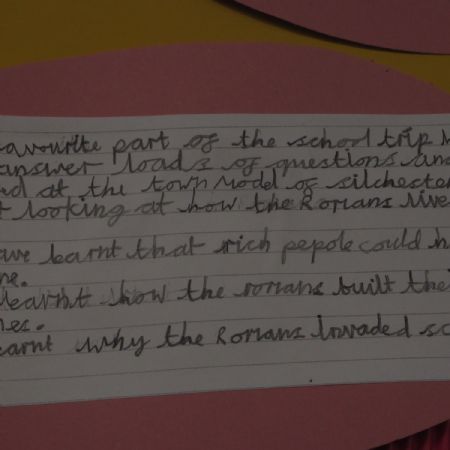 avourite part of the school trip
answer loads of questions and
ed at the town model of silchester
looking at how the Romans live
ave learnt that rich pepole could h
re.
learnt how the romans built the
es.
earnt why the Romans invaded sc